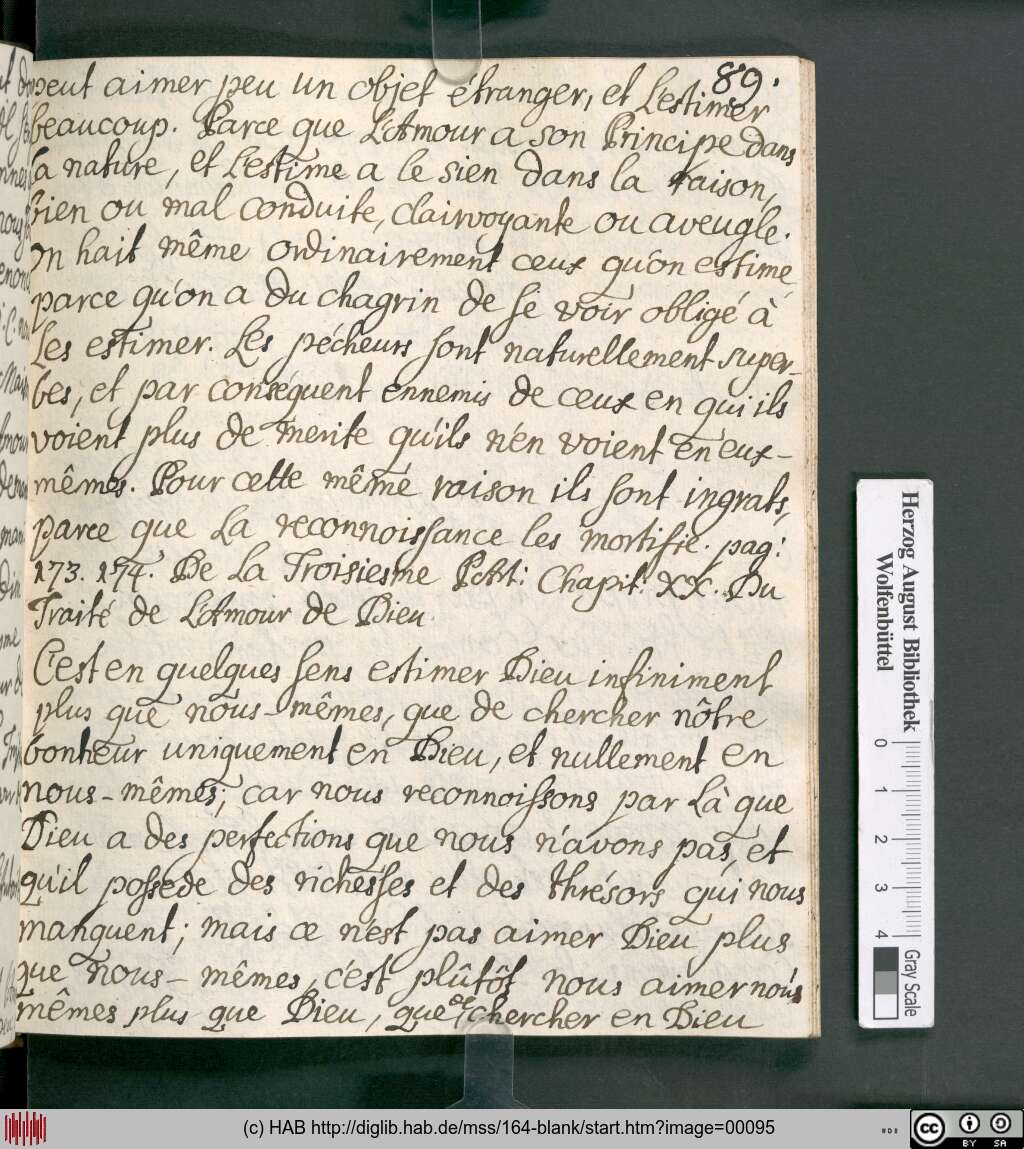 89.
peut aimer peu un objet étranger, et L'estimer
beaucoup. Parce que L'Amour a son Principe dans
la nature, et L'estime a le sien dans la raison,
bien ou mal conduite, clairvoyante ou aveugle.
On hait même ordinairement ceux qu'on estime,
parce qu'on a du chagrin de se voir obligé à
Les estimer. Les pécheurs sont naturellement super-
bes, et par conséquent ennemis de ceux en qui ils
voient plus de merite qu'ils n'en voient en eux-
mêmes. Pour cette même raison ils sont ingrats,
parce que La reconnoissance les mortifie. pag:
173. 174. De La Troisiesme Part: Chapit: XX. Du
Traité de L'Amour de Dieu.
C'est en quelques sens estimer Dieu infiniment
plus que nous-mêmes, que de chercher nôtre
bonheur uniquement en Dieu, et nullement en
nous-mêmes; car nous reconnoissons par Là que
Dieu a des perfections que nous n'avons pas, et
qu'il possede des richesses et des thrésors qui nous
manquent; mais ce n'est pas aimer Dieu plus
que nous-mêmes, c'est plûtôt nous aimer nous
mêmes plus que Dieu, que de chercher en Dieu
Herzog August Bibliothek
Wolfenbüttel
0 1 2 3 4
Gray Scale
(c) HAB http://diglib.hab.de/mss/164-blank/start.htm?image=00095
cc BY SA